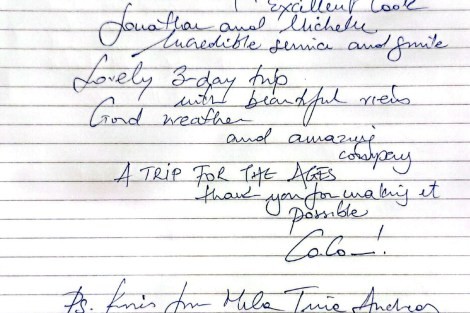 Excellent Cook
Jonathan and Michelle
Incredible service and smile
Lovely 3-day trip
with beautiful views
Good weather
and amazing
company
A TRIP FOR THE AGES
thank you for making it
possible
Ps. from Mila Andrea